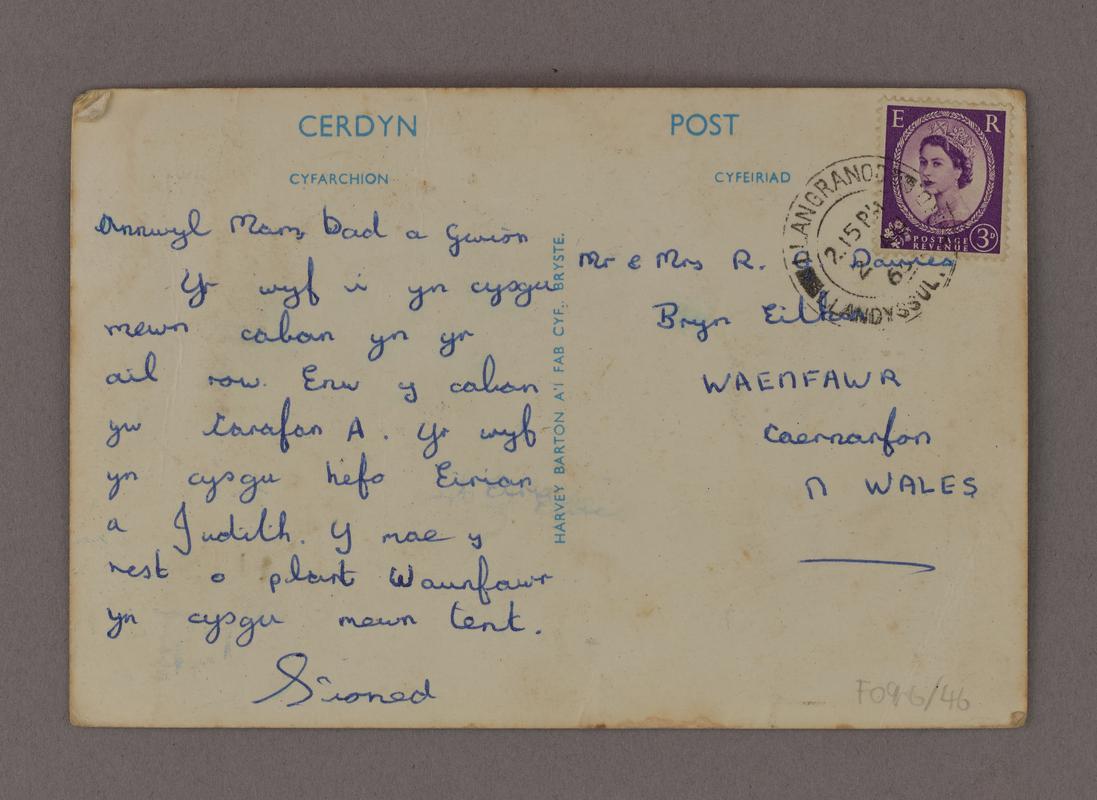 CERDYN POST
CYFARCHION
CYFEIRIAD
Annwyl Mam, Dad a Gwion
Yr wyf i yn cysgu
mewn caban yn yr
ail row. Enw y caban
yw Carafan A. Yr wyf
yn cysgu hefo Eirian
a Judith. Y mae y
rest o plant Waunfawr
yn cysgu mewn tent.
Sioned
HARVEY BARTON A'I FAB CYF., BRYSTE.
Mr & Mrs R. Davies
Bryn
WAENFAWR
Caernarfon
N WALES
E R
POSTAGE
REVENUE
3D
2.15 PM
LLANDYSSUL
F09.6/46